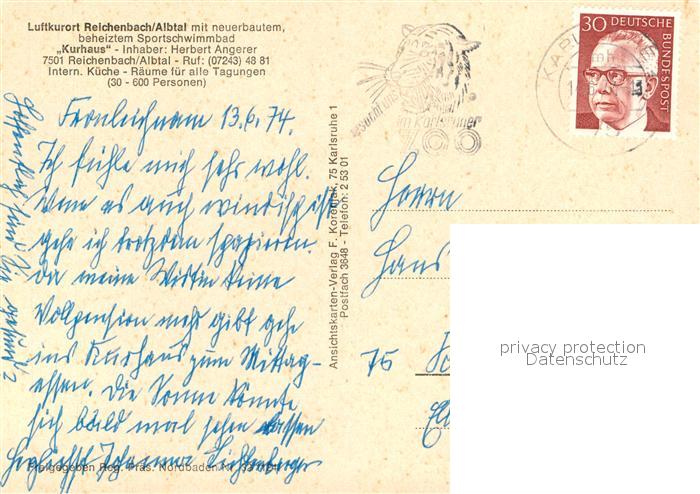 Luftkurort Reichenbach/Albtal mit neuerbautem,
beheiztem Sportschwimmbad
„Kurhaus" - Inhaber: Herbert Angerer
7501 Reichenbach/Albtal - Ruf: (07243) 48 81
Intern. Küche - Räume für alle Tagungen
(30 - 600 Personen)
Fronleichnam 13.6.74.
Ich fühle mich sehr wohl.
Wenn es auch windisch ist
gehe ich trotzdem spazieren.
Da meine Wirtin keine
Vollpension mehr gibt gehe
ins Kurhaus zum Mittag-
essen. Die Sonne könnte
sich bald mal sehen lassen
Herzlichst Johanna
Hoffentlich sind Sie gesund?
Freigegeben Reg. Präs. Nordbaden Nr.
Ansichtskarten-Verlag F. Korenjak, 75 Karlsruhe 1
Postfach 3648 - Telefon: 2 53 01
Karlsruher
ZOO
30 DEUTSCHE
BUNDESPOST
Herrn
Hans
75
privacy protection
Datenschutz